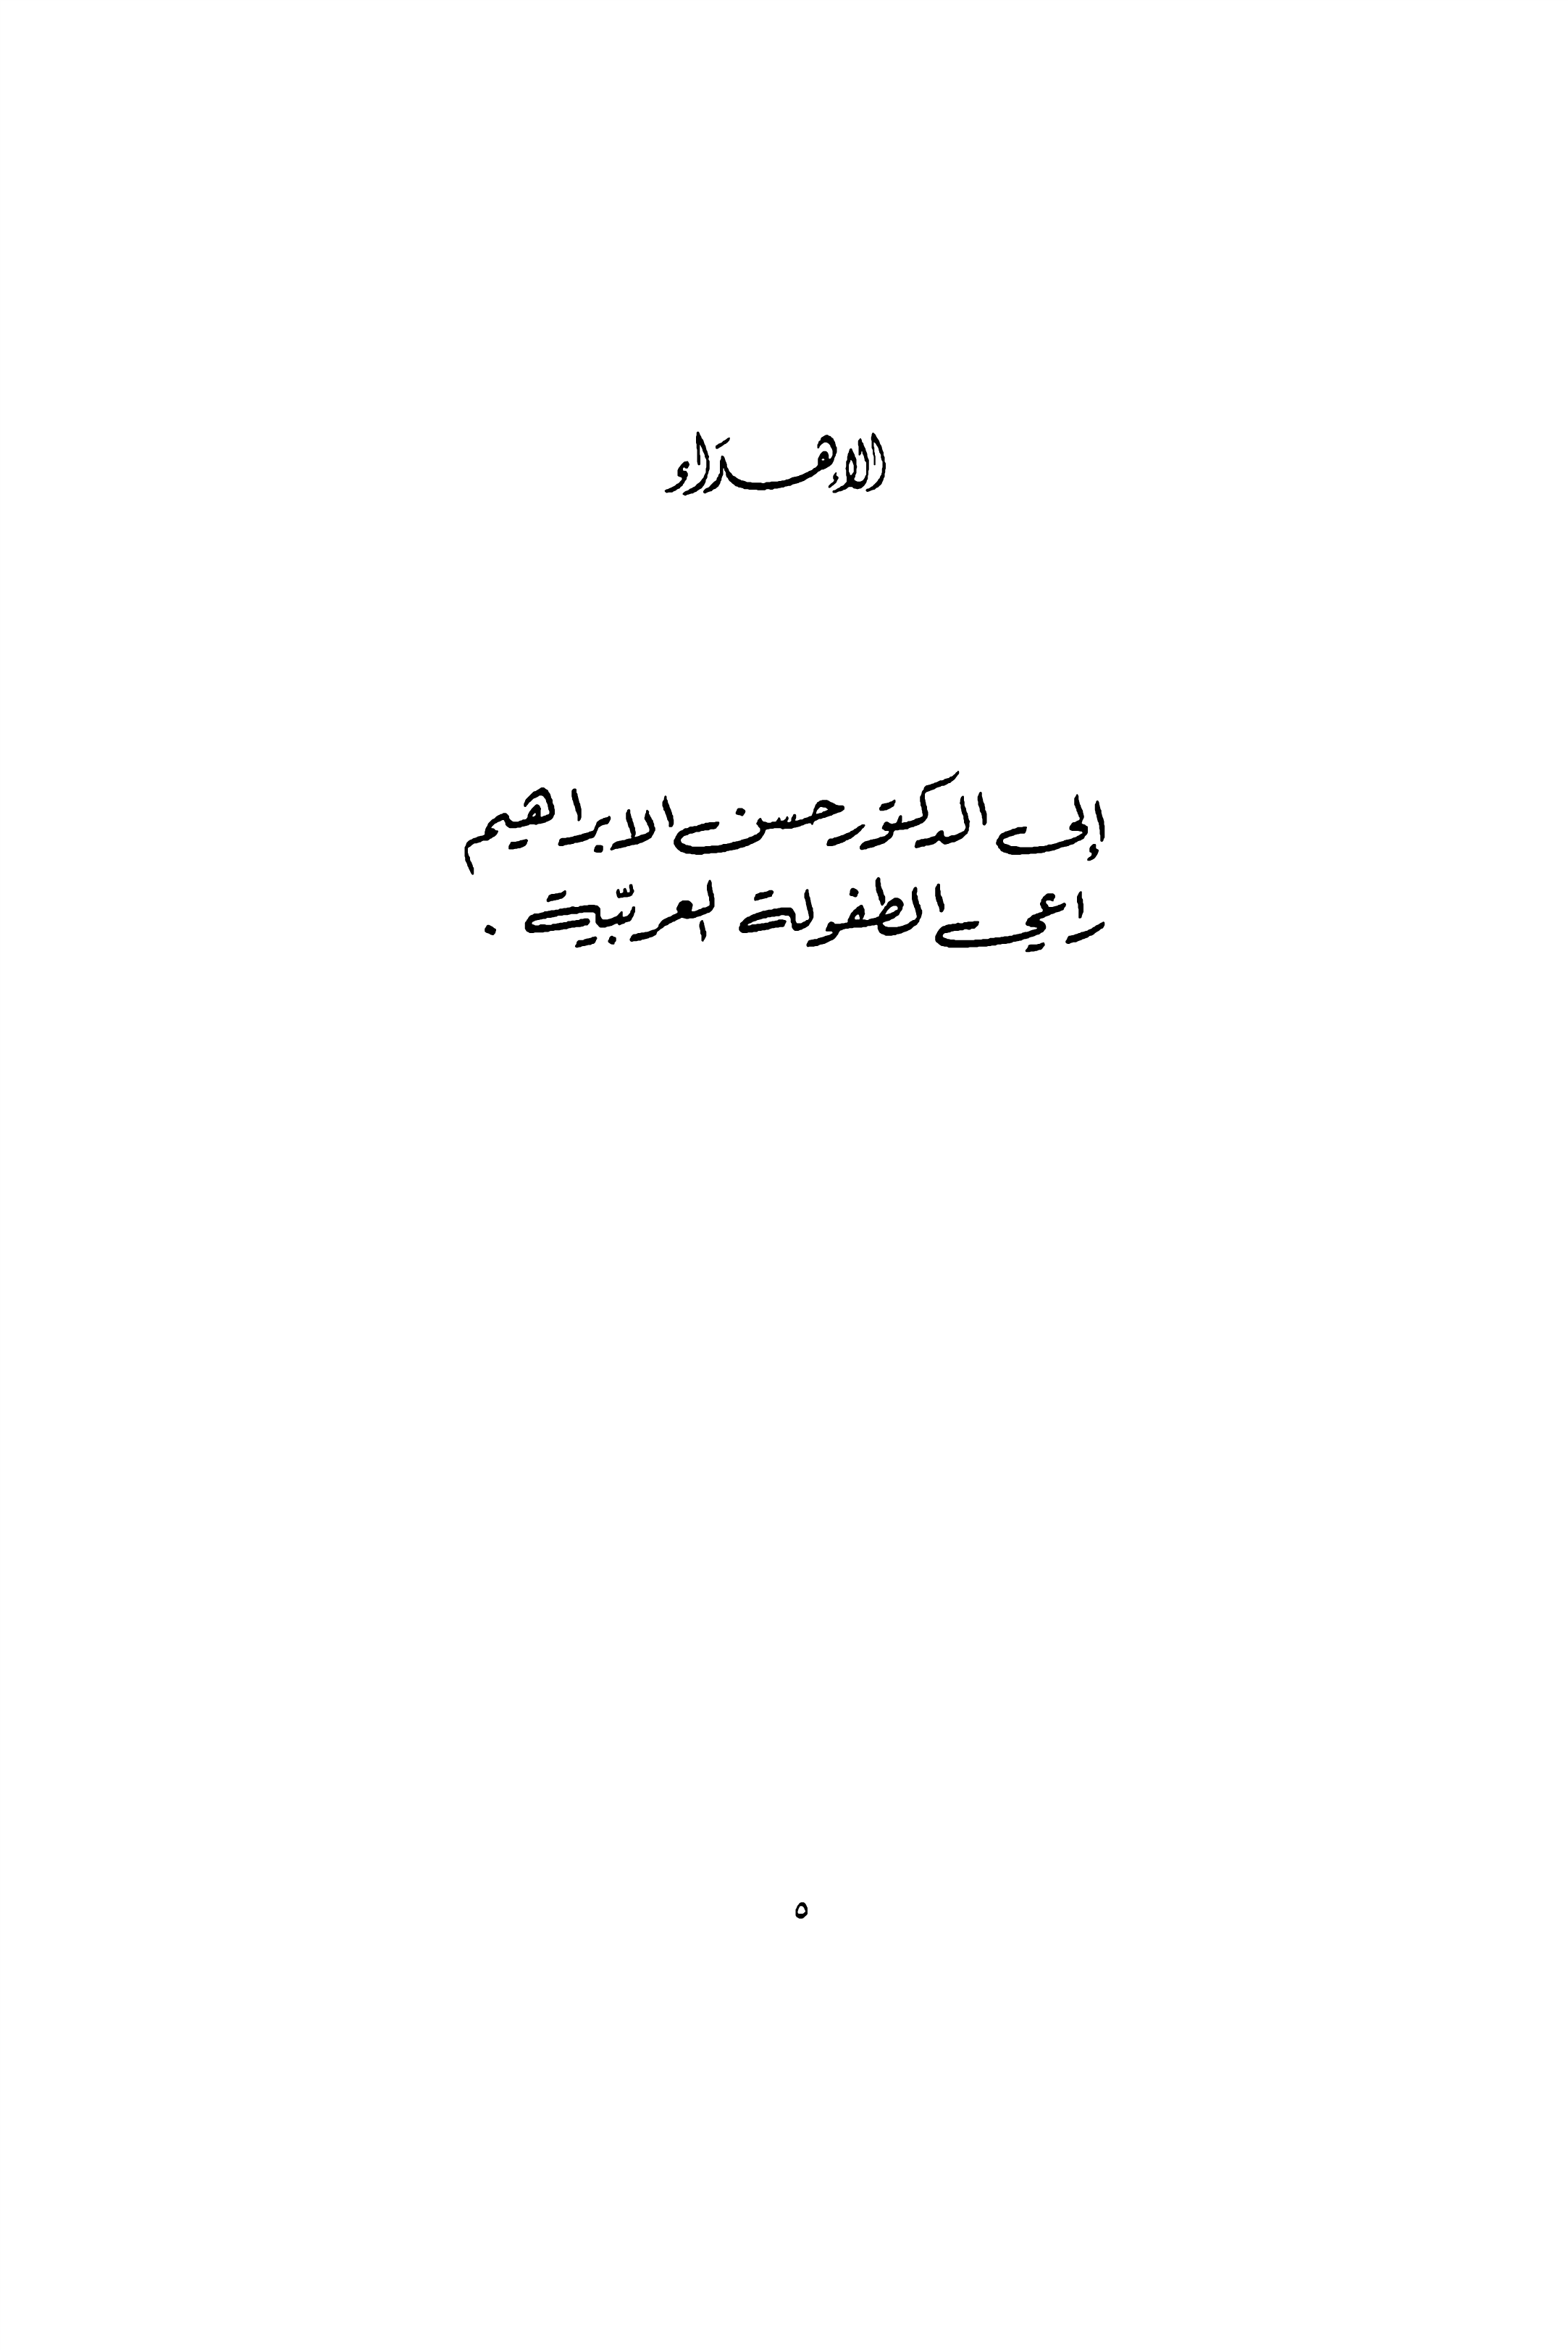 الإهداء
إلى الدكتور حسن الابراهيم
راعي الطفولة العربيّة .
٥